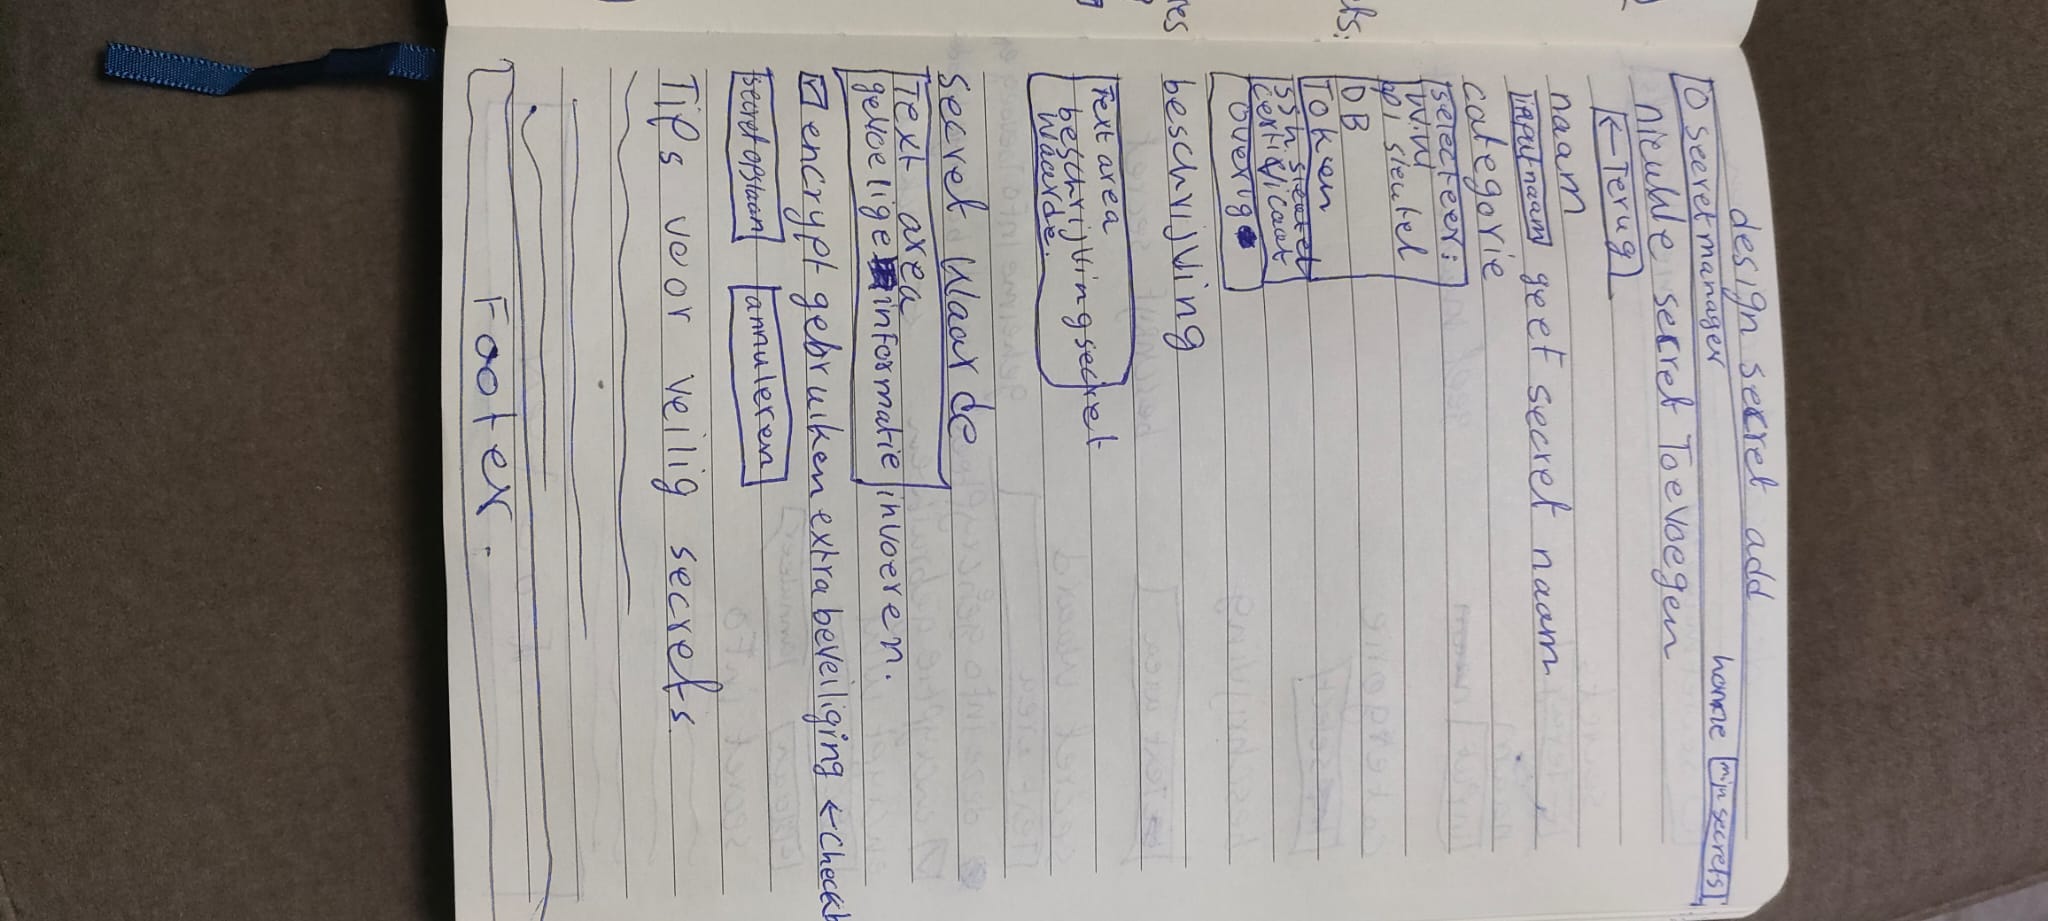 design secret add
O secret manager home mijn secrets
nieuwe secret Toevoegen
← Terug
naam
input naam get secret naam
categorie
selecteer:
api sleutel
DB
Token
SSh
certificaat
overig
beschrijving
Text area
beschrijving secret
waarde.
secret waarde
Text area
gevoelige informatie invoeren.
☑ encrypt gebruiken extra beveiliging ← checkb
secret opslaan annuleren
Tips voor veilig secrets
Footer.